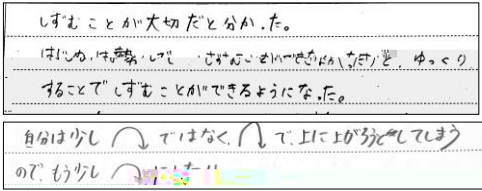 しずむことが大切だと分かった。
はじめは、勢い、しずむことができなかったけど、ゆっくり
することでしずむことができるようになった。
自分は少し ではなく、 で、上に上がろうとしてしまう
ので、もう少し